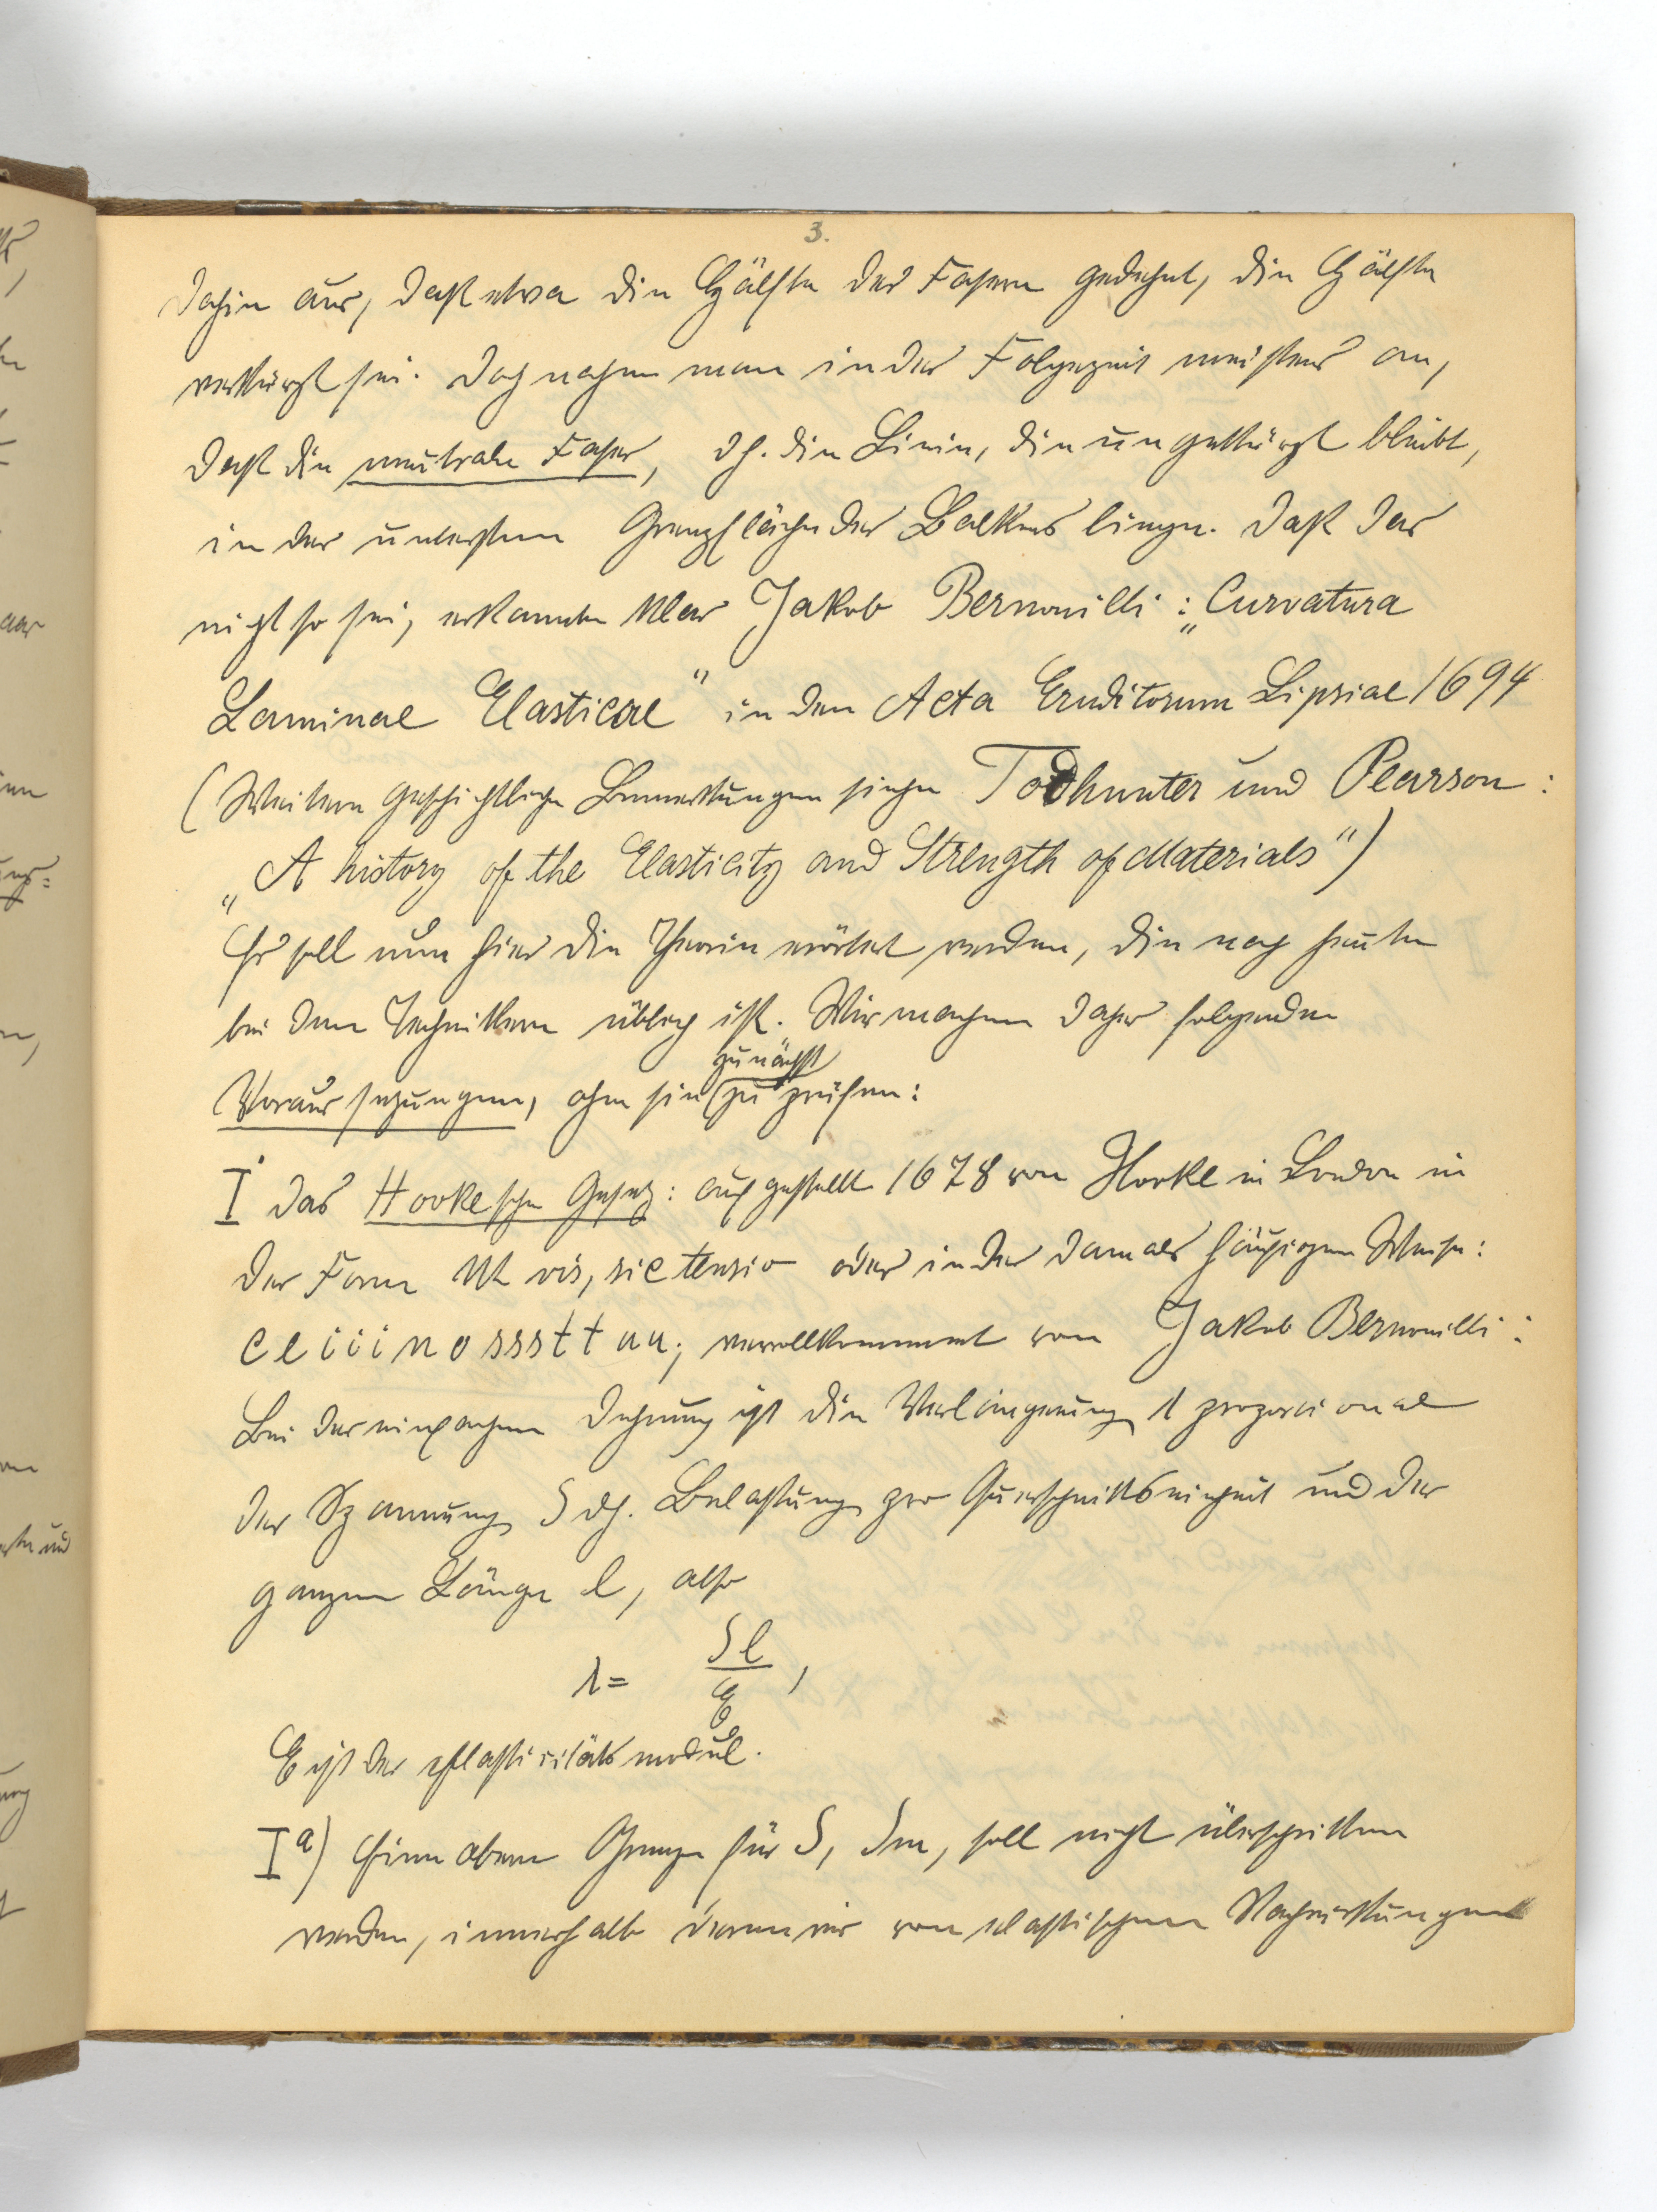 3.
dahin aus, daß etwa die Hälfte der Fasern gedehnt, die Hälfte
verkürzt sei. Doch nahm man in der Folgezeit meistens an,
daß die neutrale Faser, dh. die Linie, die ungekürzt bleibt,
in der untersten Grenzfläche des Balkens liege. Daß das
nicht so sei, erkannte klar Jakob Bernouilli: „Curvatura
Laminae Elasticae" in den Acta Eruditorum Lipsiae 1694
(Weitere geschichtliche Bemerkungen siehe Todhunter und Pearson:
„A history of the Elasticity and Strength of Materials")
Es soll nun hier die Theorie erörtert werden, die noch heute
bei den Technikern üblich ist. Wir machen daher folgende
zunächst
Voraussetzungen, ohne sie zu prüfen:
I. das Hookesche Gesetz: aufgestellt 1678 von Hooke in London in
der Form Ut vis, sic tensio oder in der damals häufigen Weise:
c e i i i n o s s s t t u u; vervollkommnet von Jakob Bernouilli:
Bei der einfachen Dehnung ist die Verlängerung λ proporcional
der Spannung S dh. Belastung pro Querschnittseinheit und der
ganzen Länge l, also
λ = Sl/E,
E ist der Elasticitätsmodul.
I a) Eine obere Grenze für S, Sm, soll nicht überschritten
werden, innerhalb deren wir von elastischen Nachwirkungen